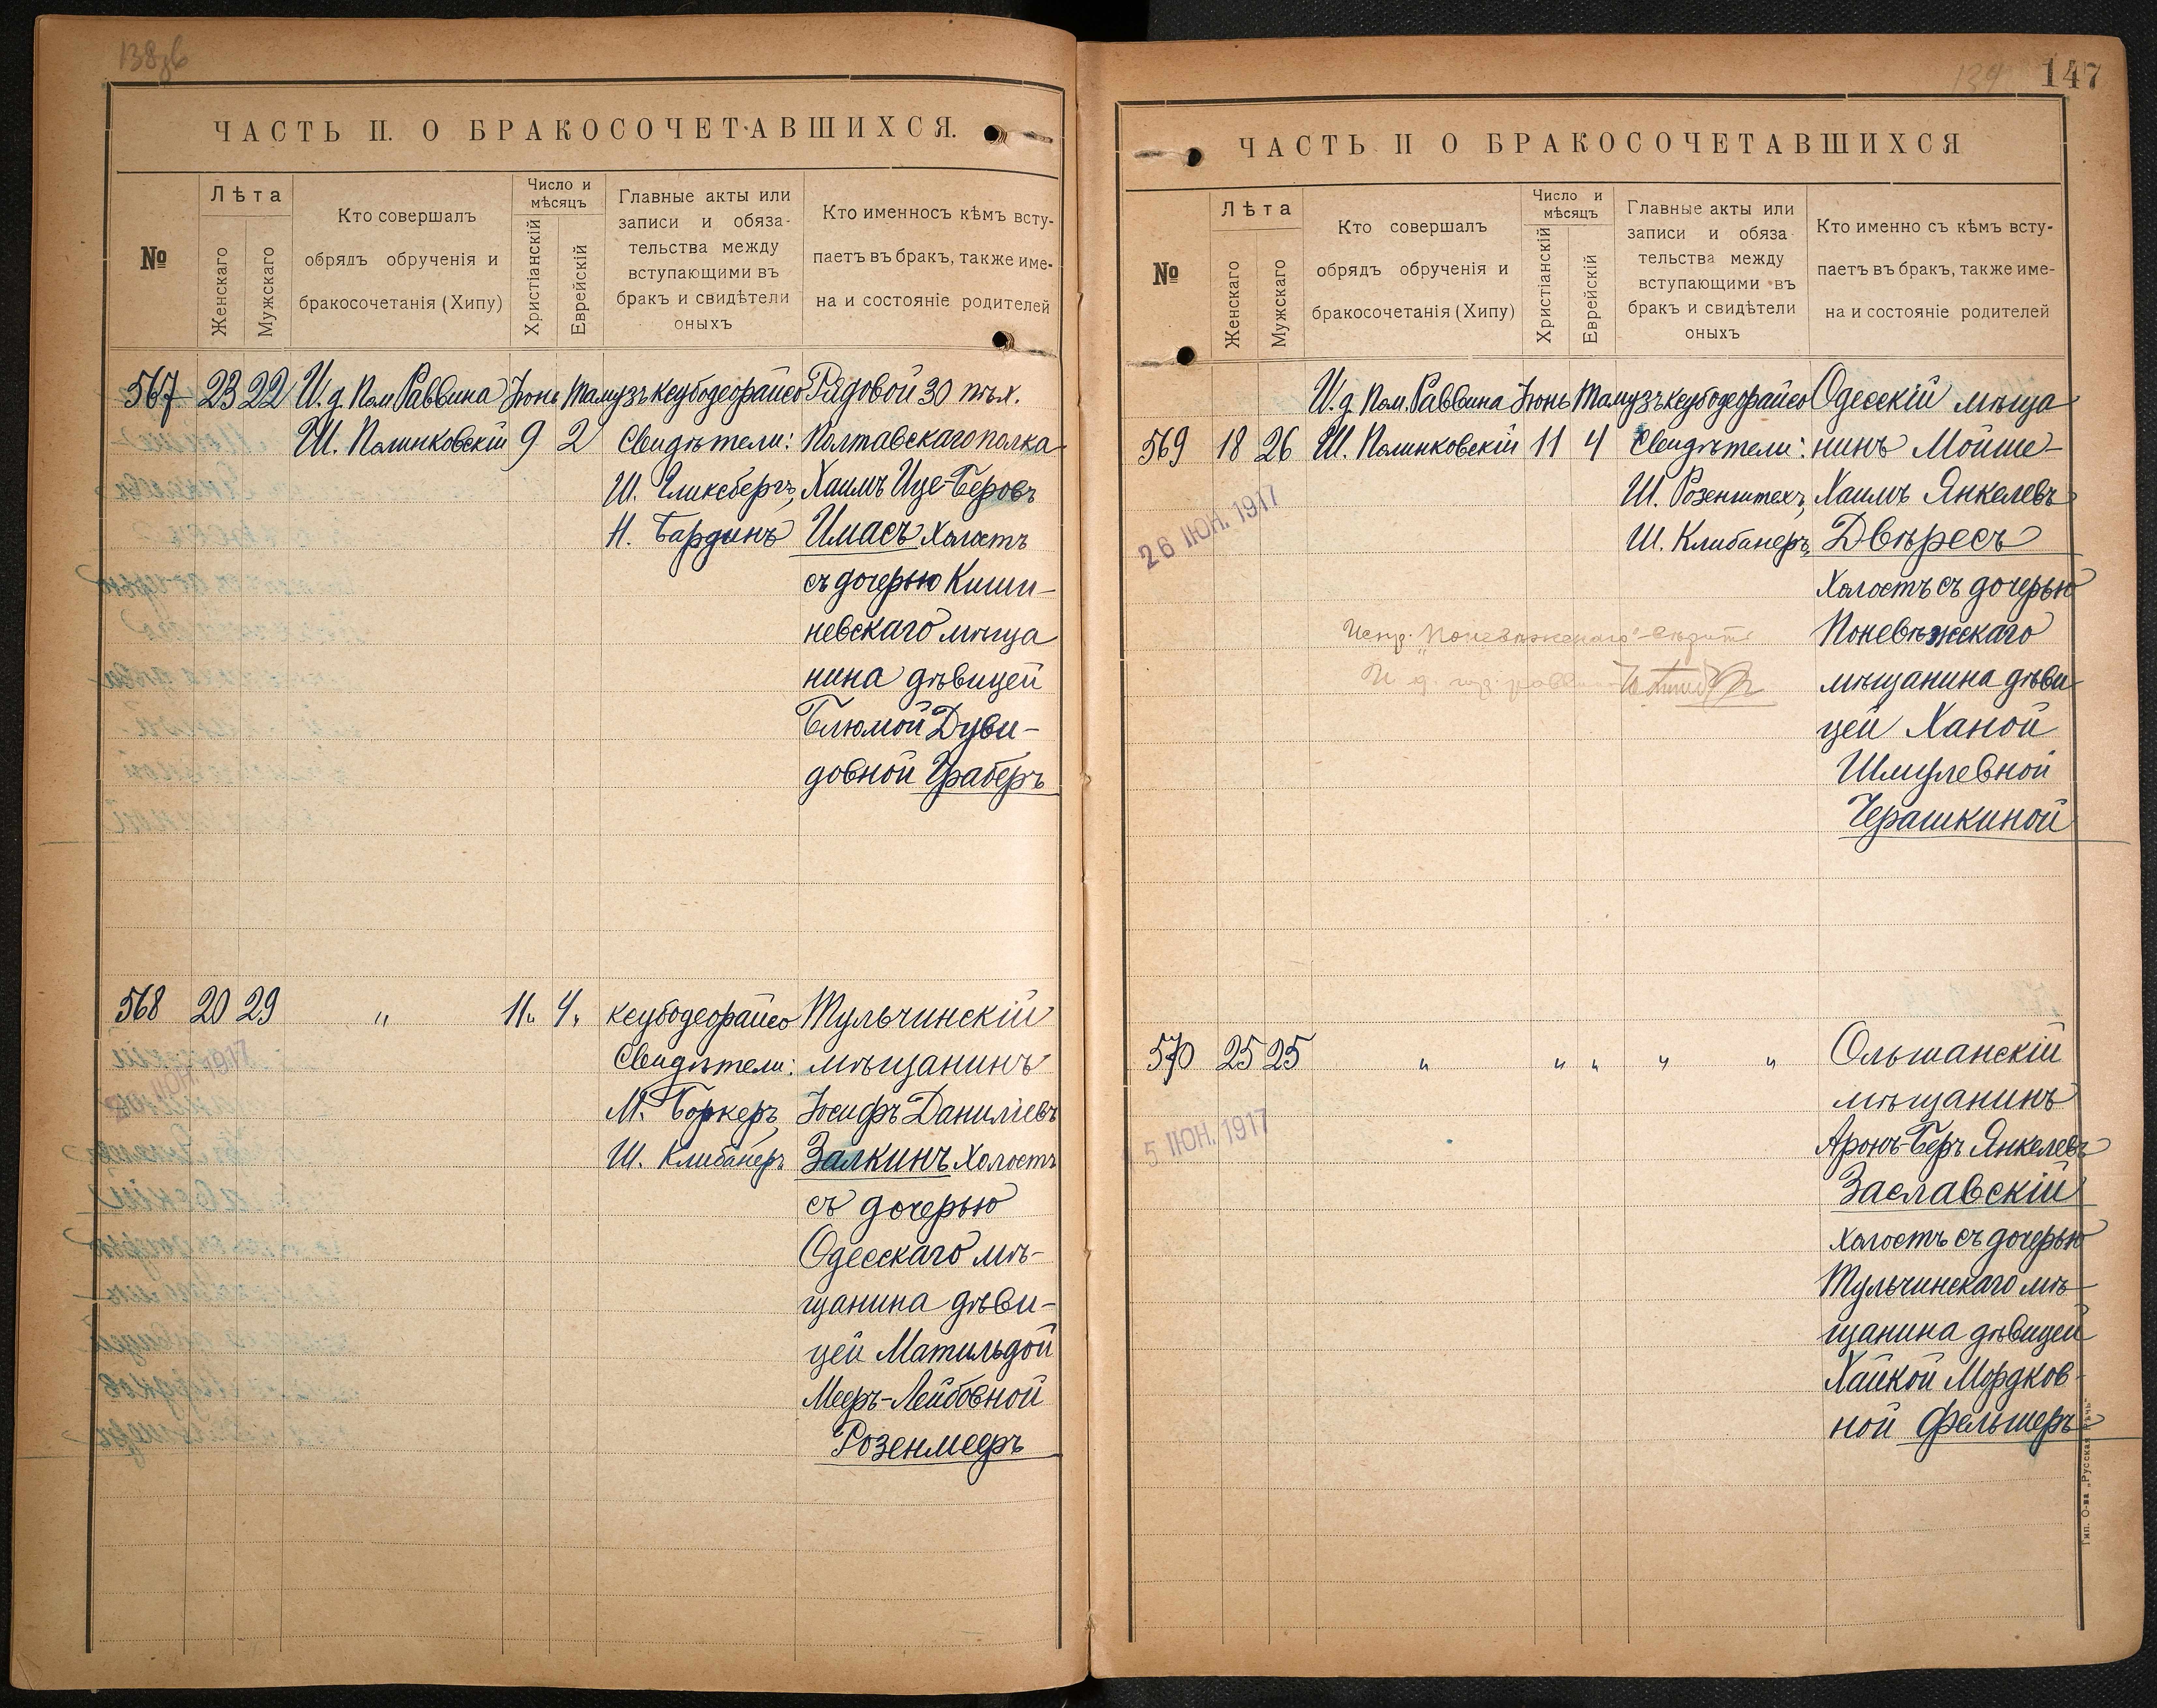 138об
ЧАСТЬ II. О БРАКОСОЧЕТАВШИХСЯ.
№
Лѣта
Женскаго
Мужскаго
Кто совершалъ
обрядъ обрученія и
бракосочетанія (Хипу)
Число и
мѣсяцъ
Христіанскій
Еврейскій
Главные акты или
записи и обяза-
тельства между
вступающими въ
бракъ и свидѣтели
оныхъ
Кто именносъ кѣмъ всту-
паетъ въ бракъ, также име-
на и состояніе родителей
567 23 22 И.д. Пом. Раввина Іюнь Тамузъ Ксубодеорайсо Рядовой 30 пѣх.
Ш. Полинковскій 9 2 Свидѣтели: Полтавскаго полка
Ш. Гликсбергъ, Хаимъ Ице-Беровъ
Н. Бардинъ Имасъ Холостъ
съ дочерью Киши-
невскаго мѣща
нина дѣвицей
Блюмой Дуви-
довной Граберъ
568 20 29 " 11. 4. Ксубодеорайсо Тульчинскій
Свидѣтели: мѣщанинъ
М. Боркеръ, Іосифъ Даниліевъ
Ш. Клибанеръ Залкинъ Холостъ
съ дочерью
Одесскаго мѣ-
щанина дѣви-
цей Матильдой
Мееръ-Лейбовной
Розенмееръ
139 147
ЧАСТЬ II О БРАКОСОЧЕТАВШИХСЯ
№
Лѣта
Женскаго
Мужскаго
Кто совершалъ
обрядъ обрученія и
бракосочетанія (Хипу)
Число и
мѣсяцъ
Христіанскій
Еврейскій
Главные акты или
записи и обяза
тельства между
вступающими въ
бракъ и свидѣтели
оныхъ
Кто именно съ кѣмъ всту-
паетъ въ бракъ, также име-
на и состояніе родителей
И.д. Пом. Раввина Іюнь Тамузъ Ксубодеорайсо Одесскій мѣща
569 18 26 Ш. Полинковскій 11 4 Свидѣтели: нинъ Мойше-
Ш. Розенштехъ, Хаимъ Янкелевъ
26 ІЮН. 1917
Ш. Клибанеръ, Двѣресъ
Холостъ съ дочерью
Испр. "Поневѣжскаго"
Поневѣжскаго
И. д.
мѣщанина дѣви
цей Ханой
Шмулевной
Черашкиной
570 25 25 " " " " " Ольшанскій
мѣщанинъ
5 ІЮН. 1917
Аронъ-Беръ Янкелевъ
Заславскій
холостъ съ дочерью
Тульчинскаго мѣ
щанина дѣвицей
Хайкой Мордков
ной Фельшеръ
Тип. О-ва „Русская Рѣчь“